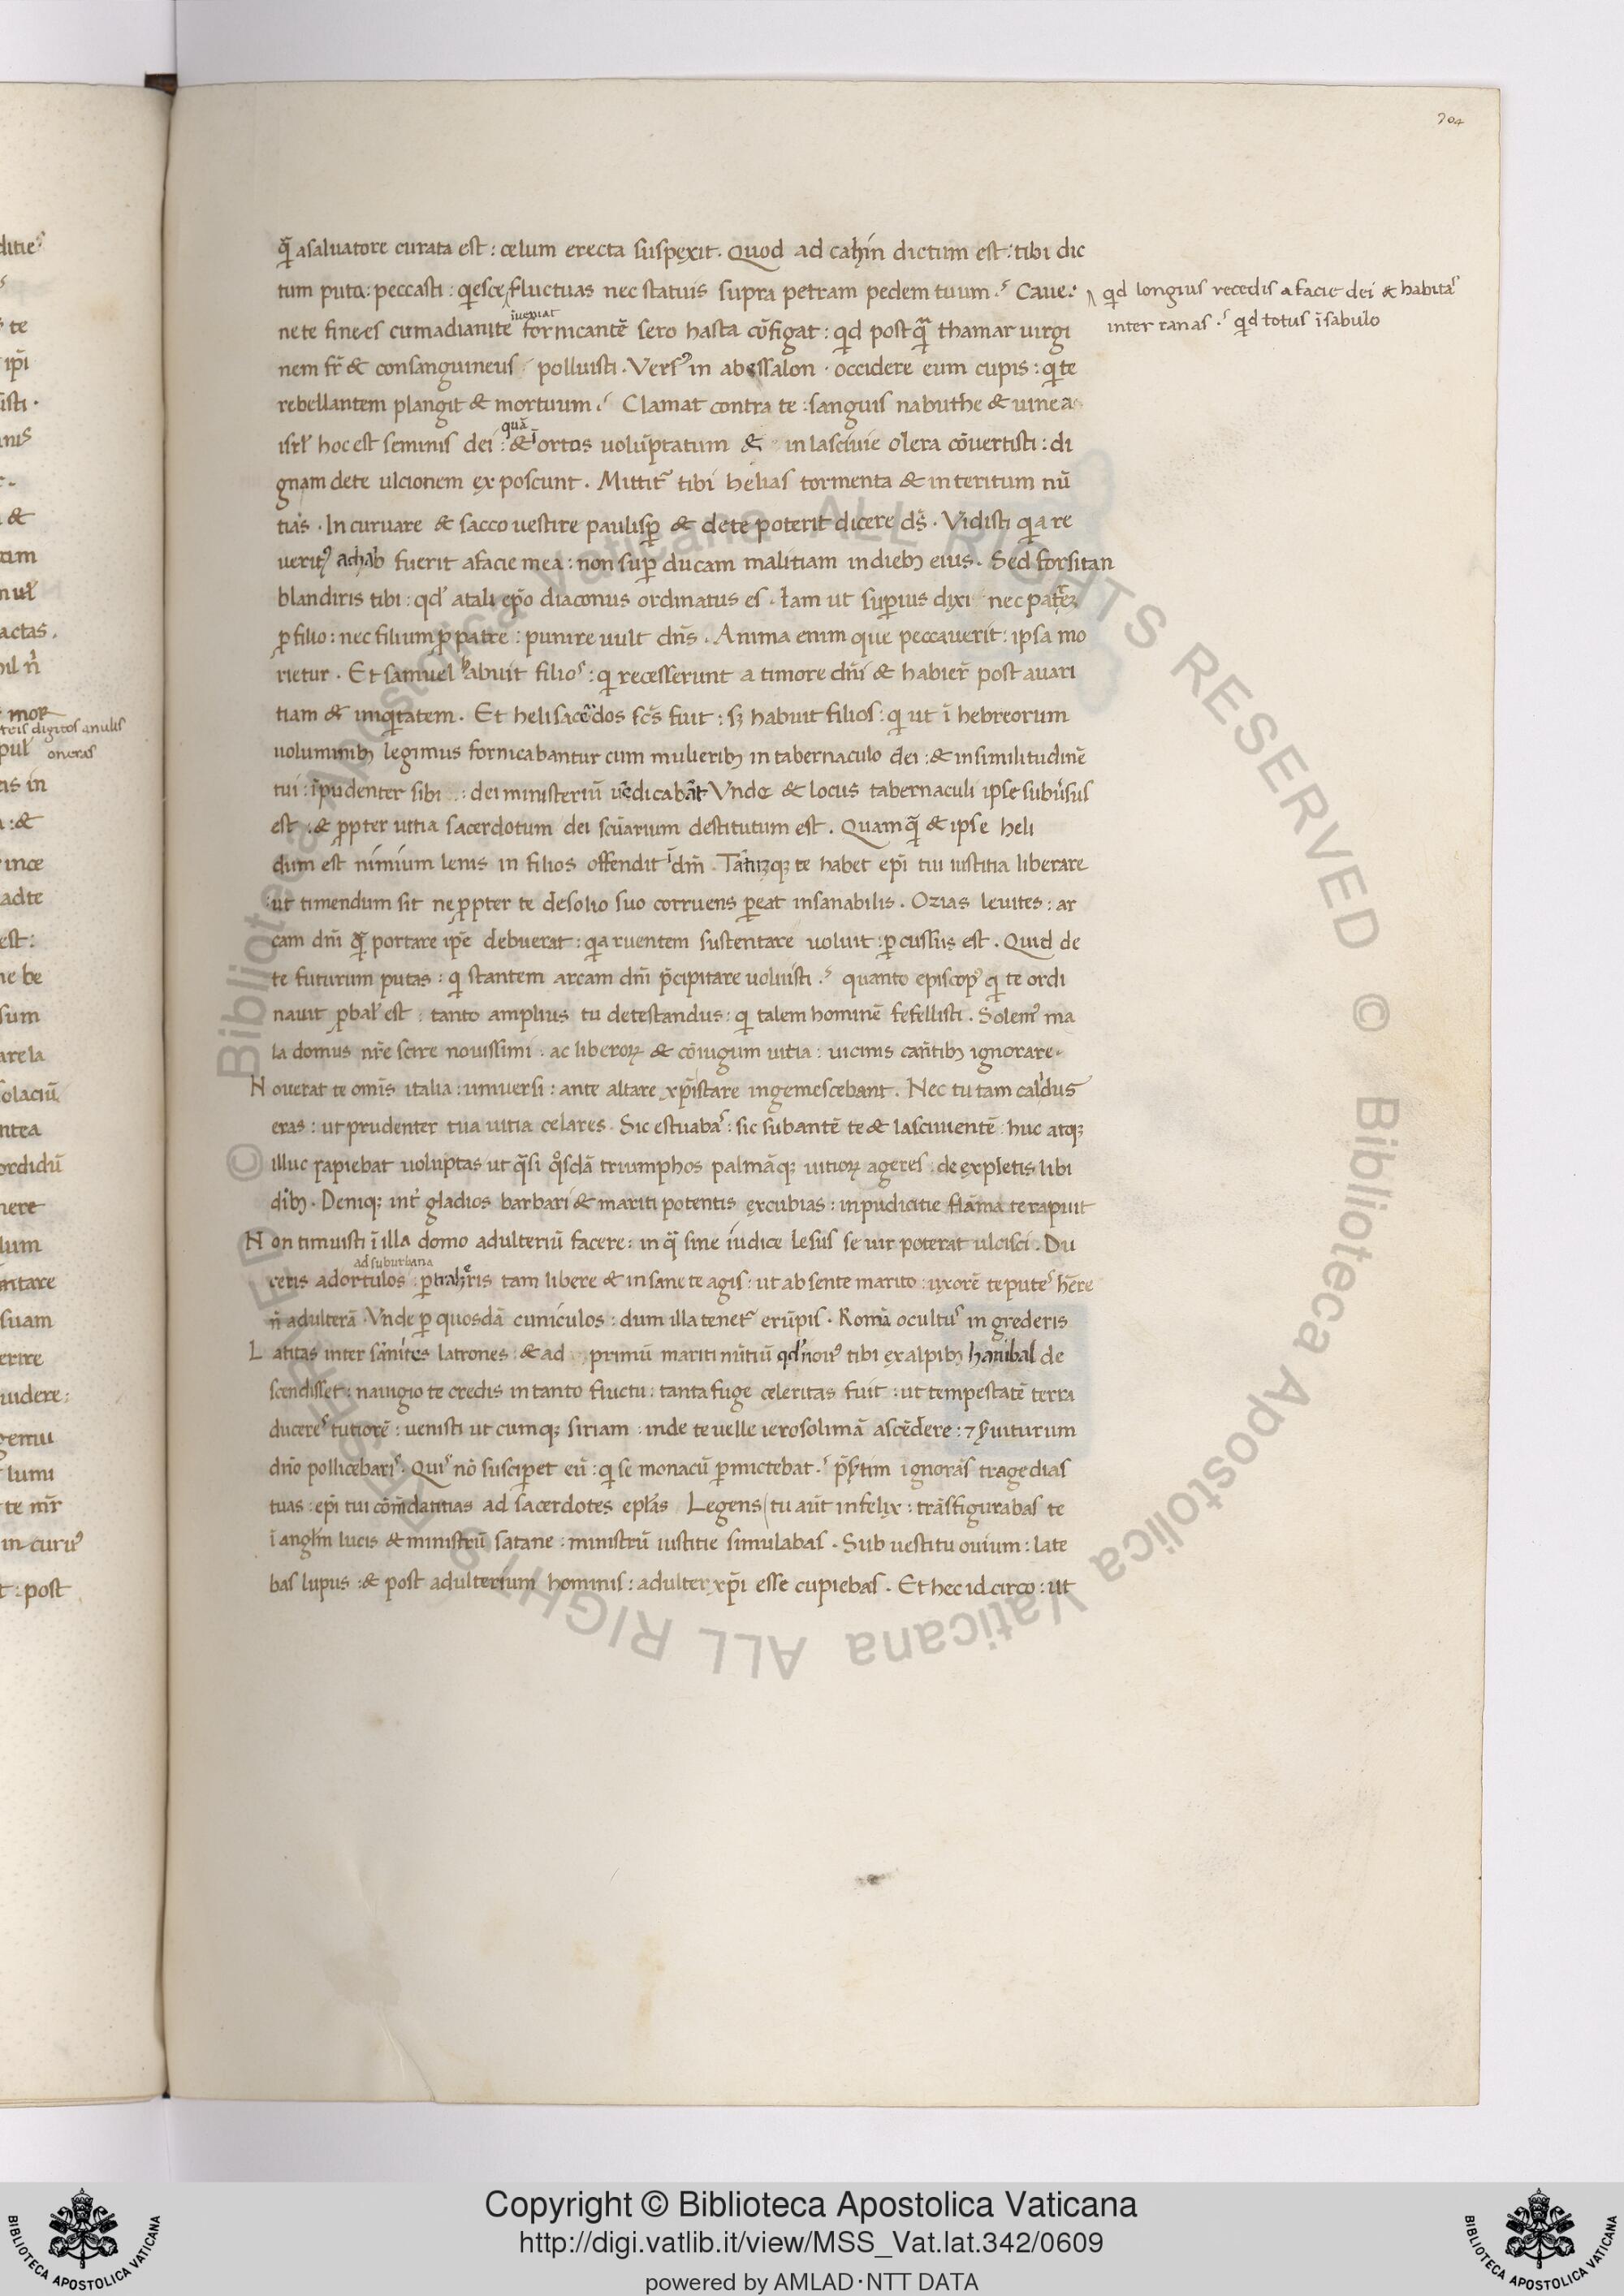 304
q̄ asaluatore curata est : celum erecta suspexit . Quod ad cahin dictum est : tibi dic
tum puta : peccasti : qesce fluctuas nec statuis supra petram pedem tuum . Caue :
qd longius recedis a facie dei & habitas
inter ranas . qd totus ī sabulo
iueniat
ne te finees cū madianitē fornicantē sero hasta cōfigat : qd post q̄ thamar uirgi
nem fr̄ & consanguineus polluisti . Versus in abessalon . occidere eum cupis : q te
rebellantem plangit & mortuum . Clamat contra te : sanguis nabuthe & uinea
quā
isrl̄ hoc est seminis dei : & ī ortos voluptatum & in lascivie olera cōvertisti : di
gnam dete ulcionem ex poscunt . Mittit̄ tibi helias tormenta & interitum nū
tiās . In curuare & sacco vestire paulisp̄ & dete poterit dicere ds̄ . Vidisti q a re
uerit achab fuerit afacie mea : non sup ducam malitiam in dieb; eius . Sed forsitan
blandiris tibi : qd atali ep̄o diaconus ordinatus es . Iam ut superius dixi nec patrē
p filio : nec filium p patre : punire uult dn̄s . Anima enim que peccauerit : ipsa mo
rietur . Et samuel habuit filios : q recesserunt a timore dn̄i & habier̄ post auari
tiam & iniqtatem . Et heli sacerdos sc̄s fuit : sȝ habuit filios : q ut ī hebreorum
uoluminib; legimus fornicabantur cum mulierib; in tabernaculo dei : & in similitudinē
tui : īpudenter sibi : dei ministeriū uēdicabāt Vnde & locus tabernaculi ipse subuersus
est : & ppter uitia sacerdotum dei scūarium destitutum est . Quamq̄ & ipse heli
dum est nimium lenis in filios offendit dm̄ . Tantū te habet ep̄i tui iustitia liberare
ut timendum sit ne ppter te desolio suo corruens peat insanabilis . Ozias leuites : ar
cam dn̄i q̄ portare ip̄e debuerat : qa ruentem sustentare uoluit : p cussus est . Quid de
te futurum putas : q stantem arcam dn̄i p̄cipitare voluisti . quanto episcop q te ordi
nauit p bal̄ est : tanto amplius tu detestandus : q talem hominē fefellisti . Solem ma
la domus nr̄e scire nouissimi : ac liberoȝ & cōiugum uitia : uicinis cantib; ignorare .
Nouerat te omīs italia : uniuersi : ante altare xp̄i stare ingemescebant . Nec tu tam calidus
eras : ut prudenter tua uitia celares . Sic estuabas : sic subantē te & lasciuientē : huc atq;
illuc rapiebat uoluptas ut q̄si qosdā triumphos palmāq; uitioȝ ageres : de expletis libi
dib; . Deniq; int gladios barbari & mariti potentis excubias : inpudicitie flāma te rapuit
Non timuisti ī illa domo adulteriū facere : in q sine iudice lesus se uir poterat ulcisci . Du
ad suburbana
ceris adortulos : p traheris tam libere & insane te agis : ut ab sente marito : uxorē te putes hēre
n̄ adulterā . Vnde p quosdā cuniculos : dum illa tenet̄ erūpis . Romā ocultus in grederis
Latitas inter sānites latrones : & ad primū mariti nūtiū qd nouus tibi ex alpib; hanibal de
scendisset : nauigio te credis in tanto fluctu : tanta fuge celeritas fuit : ut tempestatē terra
duceres tutiorē : uenisti ut cumq; siriam : inde te uelle ierosolimā ascēdere : ⁊ suiturum
dn̄o pollicebaris . Quis nō susciperet eū : q se monacū pmictebat . p̄sertim ignorās tragedias
tuas : ep̄i tui cōm̄datitias ad sacerdotes ep̄las Legens tu aūt infelix : trāsfigurabas te
ī angl̄m lucis & ministrū satane : ministrū iustitie simulabas . Sub vestitu ouium : late
bas lupus : & post adulterium hominis : adulter xp̄i esse cupiebas . Et hec id circo : ut
© Biblioteca Apostolica Vaticana ALL RIGHTS RESERVED
Copyright © Biblioteca Apostolica Vaticana
http://digi.vatlib.it/view/MSS_Vat.lat.342/0609
powered by AMLAD·NTT DATA
BIBLIOTECA APOSTOLICA VATICANA
BIBLIOTECA APOSTOLICA VATICANA